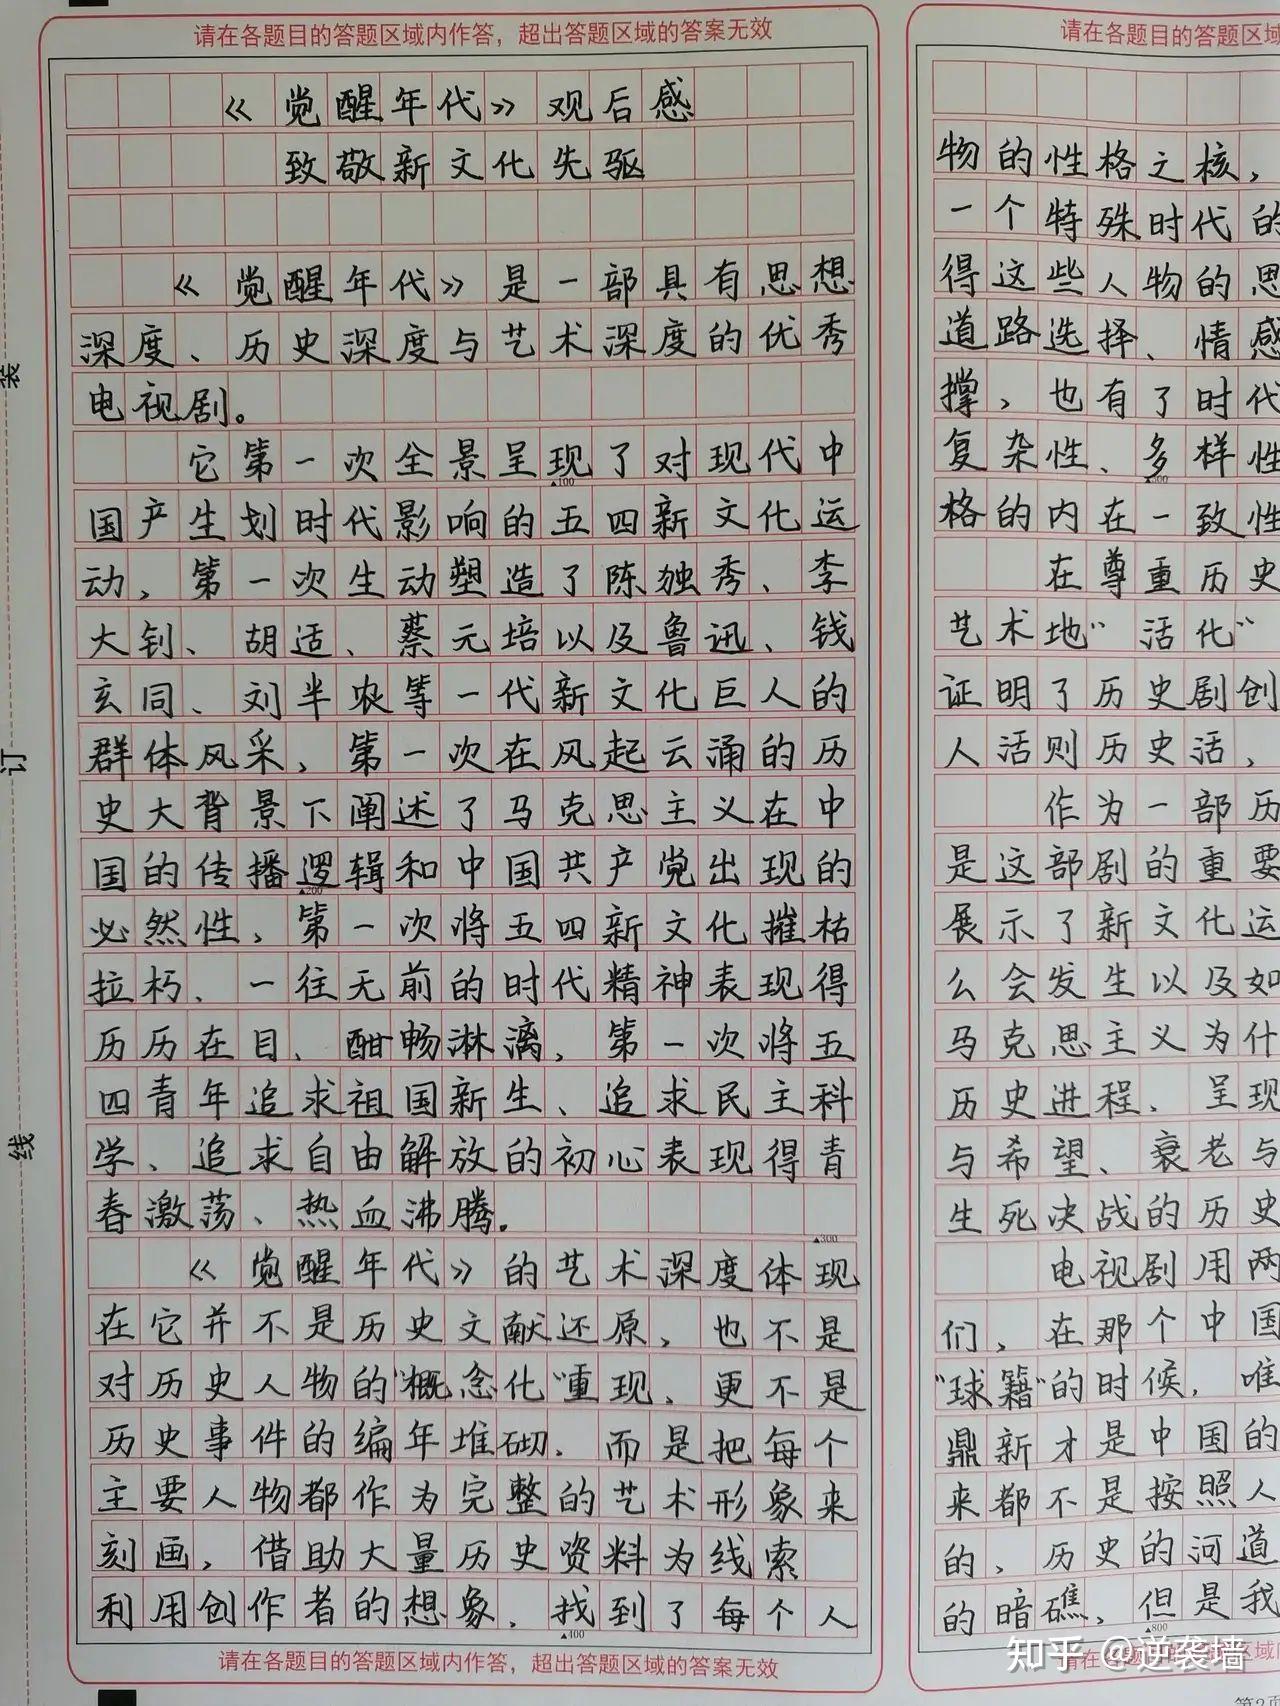 请在各题目的答题区域内作答，超出答题区域的答案无效
《觉醒年代》观后感
致敬新文化先驱
《觉醒年代》是一部具有思想
深度、历史深度与艺术深度的优秀
电视剧。
它第一次全景呈现了对现代中
▲100
国产生划时代影响的五四新文化运
动，第一次生动塑造了陈独秀、李
大钊、胡适、蔡元培以及鲁迅、钱
玄同、刘半农等一代新文化巨人的
群体风采，第一次在风起云涌的历
史大背景下阐述了马克思主义在中
国的传播逻辑和中国共产党出现的
▲200
必然性，第一次将五四新文化摧枯
拉朽、一往无前的时代精神表现得
历历在目、酣畅淋漓，第一次将五
四青年追求祖国新生、追求民主科
学、追求自由解放的初心表现得青
春激荡、热血沸腾。
▲300
《觉醒年代》的艺术深度体现
在它并不是历史文献还原，也不是
对历史人物的“概念化”重现，更不是
历史事件的编年堆砌，而是把每个
主要人物都作为完整的艺术形象来
刻画，借助大量历史资料为线索
利用创作者的想象，找到了每个人
▲400
请在各题目的答题区域内作答，超出答题区域的答案无效
装
订
线
请在各题目的答题区域
物的性格之核，
一个特殊时代的
得这些人物的思
道路选择、情感
撑，也有了时代
复杂性、多样性
▲500
格的内在一致性
在尊重历史
艺术地“活化”
证明了历史剧创
人活则历史活，
作为一部历
是这部剧的重要
展示了新文化运
么会发生以及如
马克思主义为什
历史进程，呈现
与希望、衰老与
生死决战的历史
电视剧用两
们，在那个中国
“球籍”的时候，唯
鼎新才是中国的
来都不是按照人
的，历史的河道
的暗礁，但是我
▲800
请在各题目的答题区域
知乎 @逆袭墙